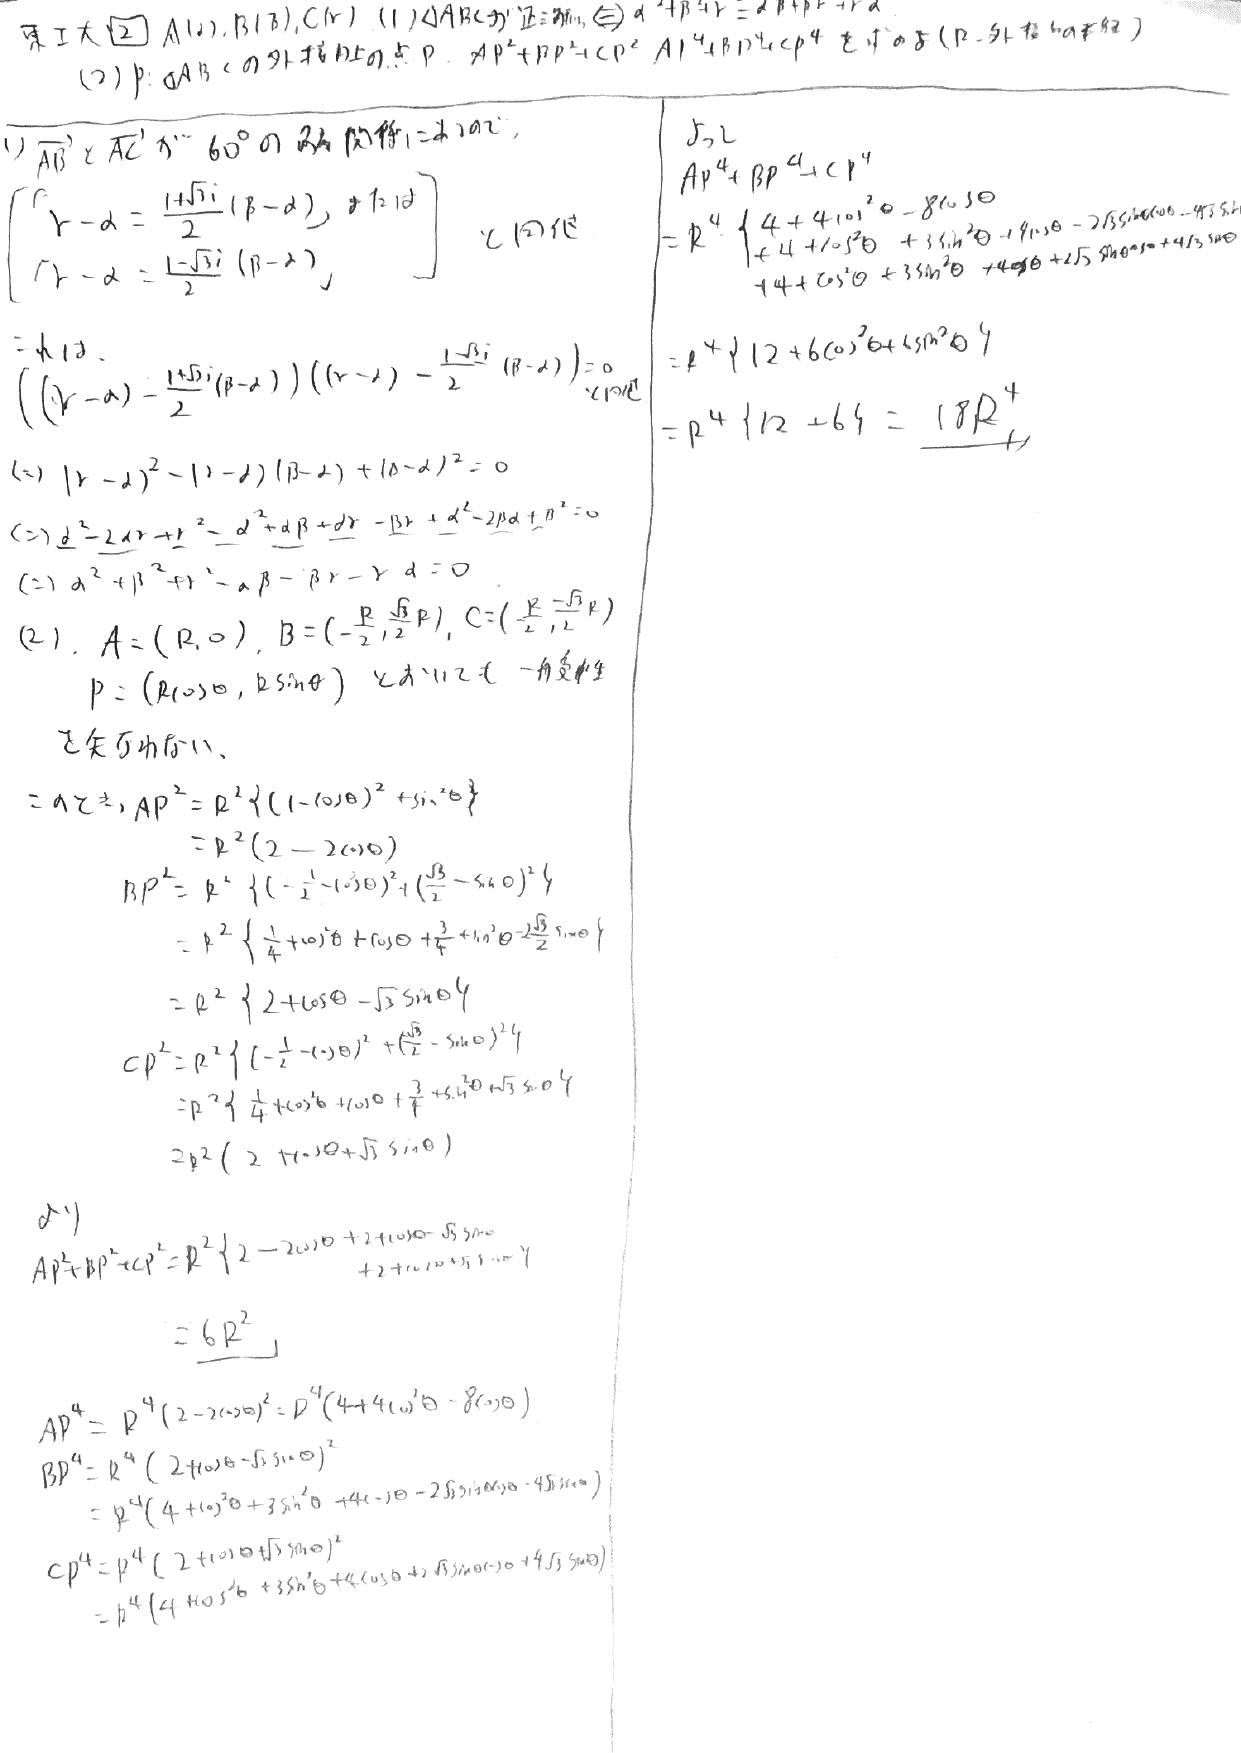 東工大 [2] A(α), B(β), C(γ) (1) △ABCが正三角形 ⇔ α²+β²+γ²=αβ+βγ+γα
(2) P: △ABCの外接円上の点P. AP²+BP²+CP² AP⁴+BP⁴+CP⁴ を求めよ (R: 外接円の半径)
1) AB と AC が 60°の
γ-α = (1+√3i)/2 (β-α), または
γ-α = (1-√3i)/2 (β-α),
と同値
これは、
((γ-α) - (1+√3i)/2 (β-α)) ((γ-α) - (1-√3i)/2 (β-α)) = 0
と同値
(=) (γ-α)² - (γ-α)(β-α) + (β-α)² = 0
(=) α²-2αγ+γ² - α²+αβ+αγ - βγ + α²-2βα+β² = 0
(=) α²+β²+γ²-αβ-βγ-γα = 0
(2). A=(R,0), B=(-R/2, √3/2 R), C=(-R/2, -√3/2 R)
P=(Rcosθ, Rsinθ) とおいても 一般性
を失わない、
このとき, AP² = R²{(1-cosθ)² + sin²θ}
= R²(2-2cosθ)
BP² = R²{(-1/2-cosθ)² + (√3/2-sinθ)²}
= R²{1/4+cos²θ+cosθ+3/4+sin²θ-2√3/2 sinθ}
= R²{2+cosθ-√3sinθ}
CP² = R²{(-1/2-cosθ)² + (√3/2-sinθ)²}
= R²{1/4+cos²θ+cosθ+3/4+sin²θ+√3sinθ}
= R²(2+cosθ+√3sinθ)
より
AP²+BP²+CP² = R²{2-2cosθ+2+cosθ-√3sinθ
+2+cosθ+√3sinθ}
= 6R²
AP⁴ = R⁴(2-2cosθ)² = R⁴(4+4cos²θ-8cosθ)
BP⁴ = R⁴(2+cosθ-√3sinθ)²
= R⁴(4+cos²θ+3sin²θ+4cosθ-2√3sinθcosθ-4√3sinθ)
CP⁴ = R⁴(2+cosθ+√3sinθ)²
= R⁴(4+cos²θ+3sin²θ+4cosθ+2√3sinθcosθ+4√3sinθ)
よって
AP⁴+BP⁴+CP⁴
= R⁴{4+4cos²θ-8cosθ
+4+cos²θ+3sin²θ+4cosθ-2√3sinθcosθ-4√3sin
+4+cos²θ+3sin²θ+4cosθ+2√3sinθcosθ+4√3sinθ
= R⁴{12+6cos²θ+6sin²θ}
= R⁴{12+6} = 18R⁴